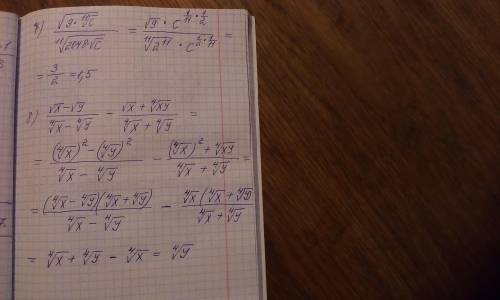 7) \frac{\sqrt{9 \cdot \sqrt[11]{c}}}{\sqrt[11]{2048\sqrt{c}}} = \frac{\sqrt{9} \cdot c^{\frac{1}{11} \cdot \frac{1}{2}}}{\sqrt[11]{2^{11}} \cdot c^{\frac{1}{2} \cdot \frac{1}{11}}} =
= \frac{3}{2} = 1,5
8) \frac{\sqrt{x} - \sqrt{y}}{\sqrt[4]{x} - \sqrt[4]{y}} - \frac{\sqrt{x} + \sqrt[4]{xy}}{\sqrt[4]{x} + \sqrt[4]{y}} =
= \frac{(\sqrt[4]{x})^2 - (\sqrt[4]{y})^2}{\sqrt[4]{x} - \sqrt[4]{y}} - \frac{(\sqrt[4]{x})^2 + \sqrt[4]{xy}}{\sqrt[4]{x} + \sqrt[4]{y}} =
= \frac{(\sqrt[4]{x} - \sqrt[4]{y})(\sqrt[4]{x} + \sqrt[4]{y})}{\sqrt[4]{x} - \sqrt[4]{y}} - \frac{\sqrt[4]{x}(\sqrt[4]{x} + \sqrt[4]{y})}{\sqrt[4]{x} + \sqrt[4]{y}}
= \sqrt[4]{x} + \sqrt[4]{y} - \sqrt[4]{x} = \sqrt[4]{y}